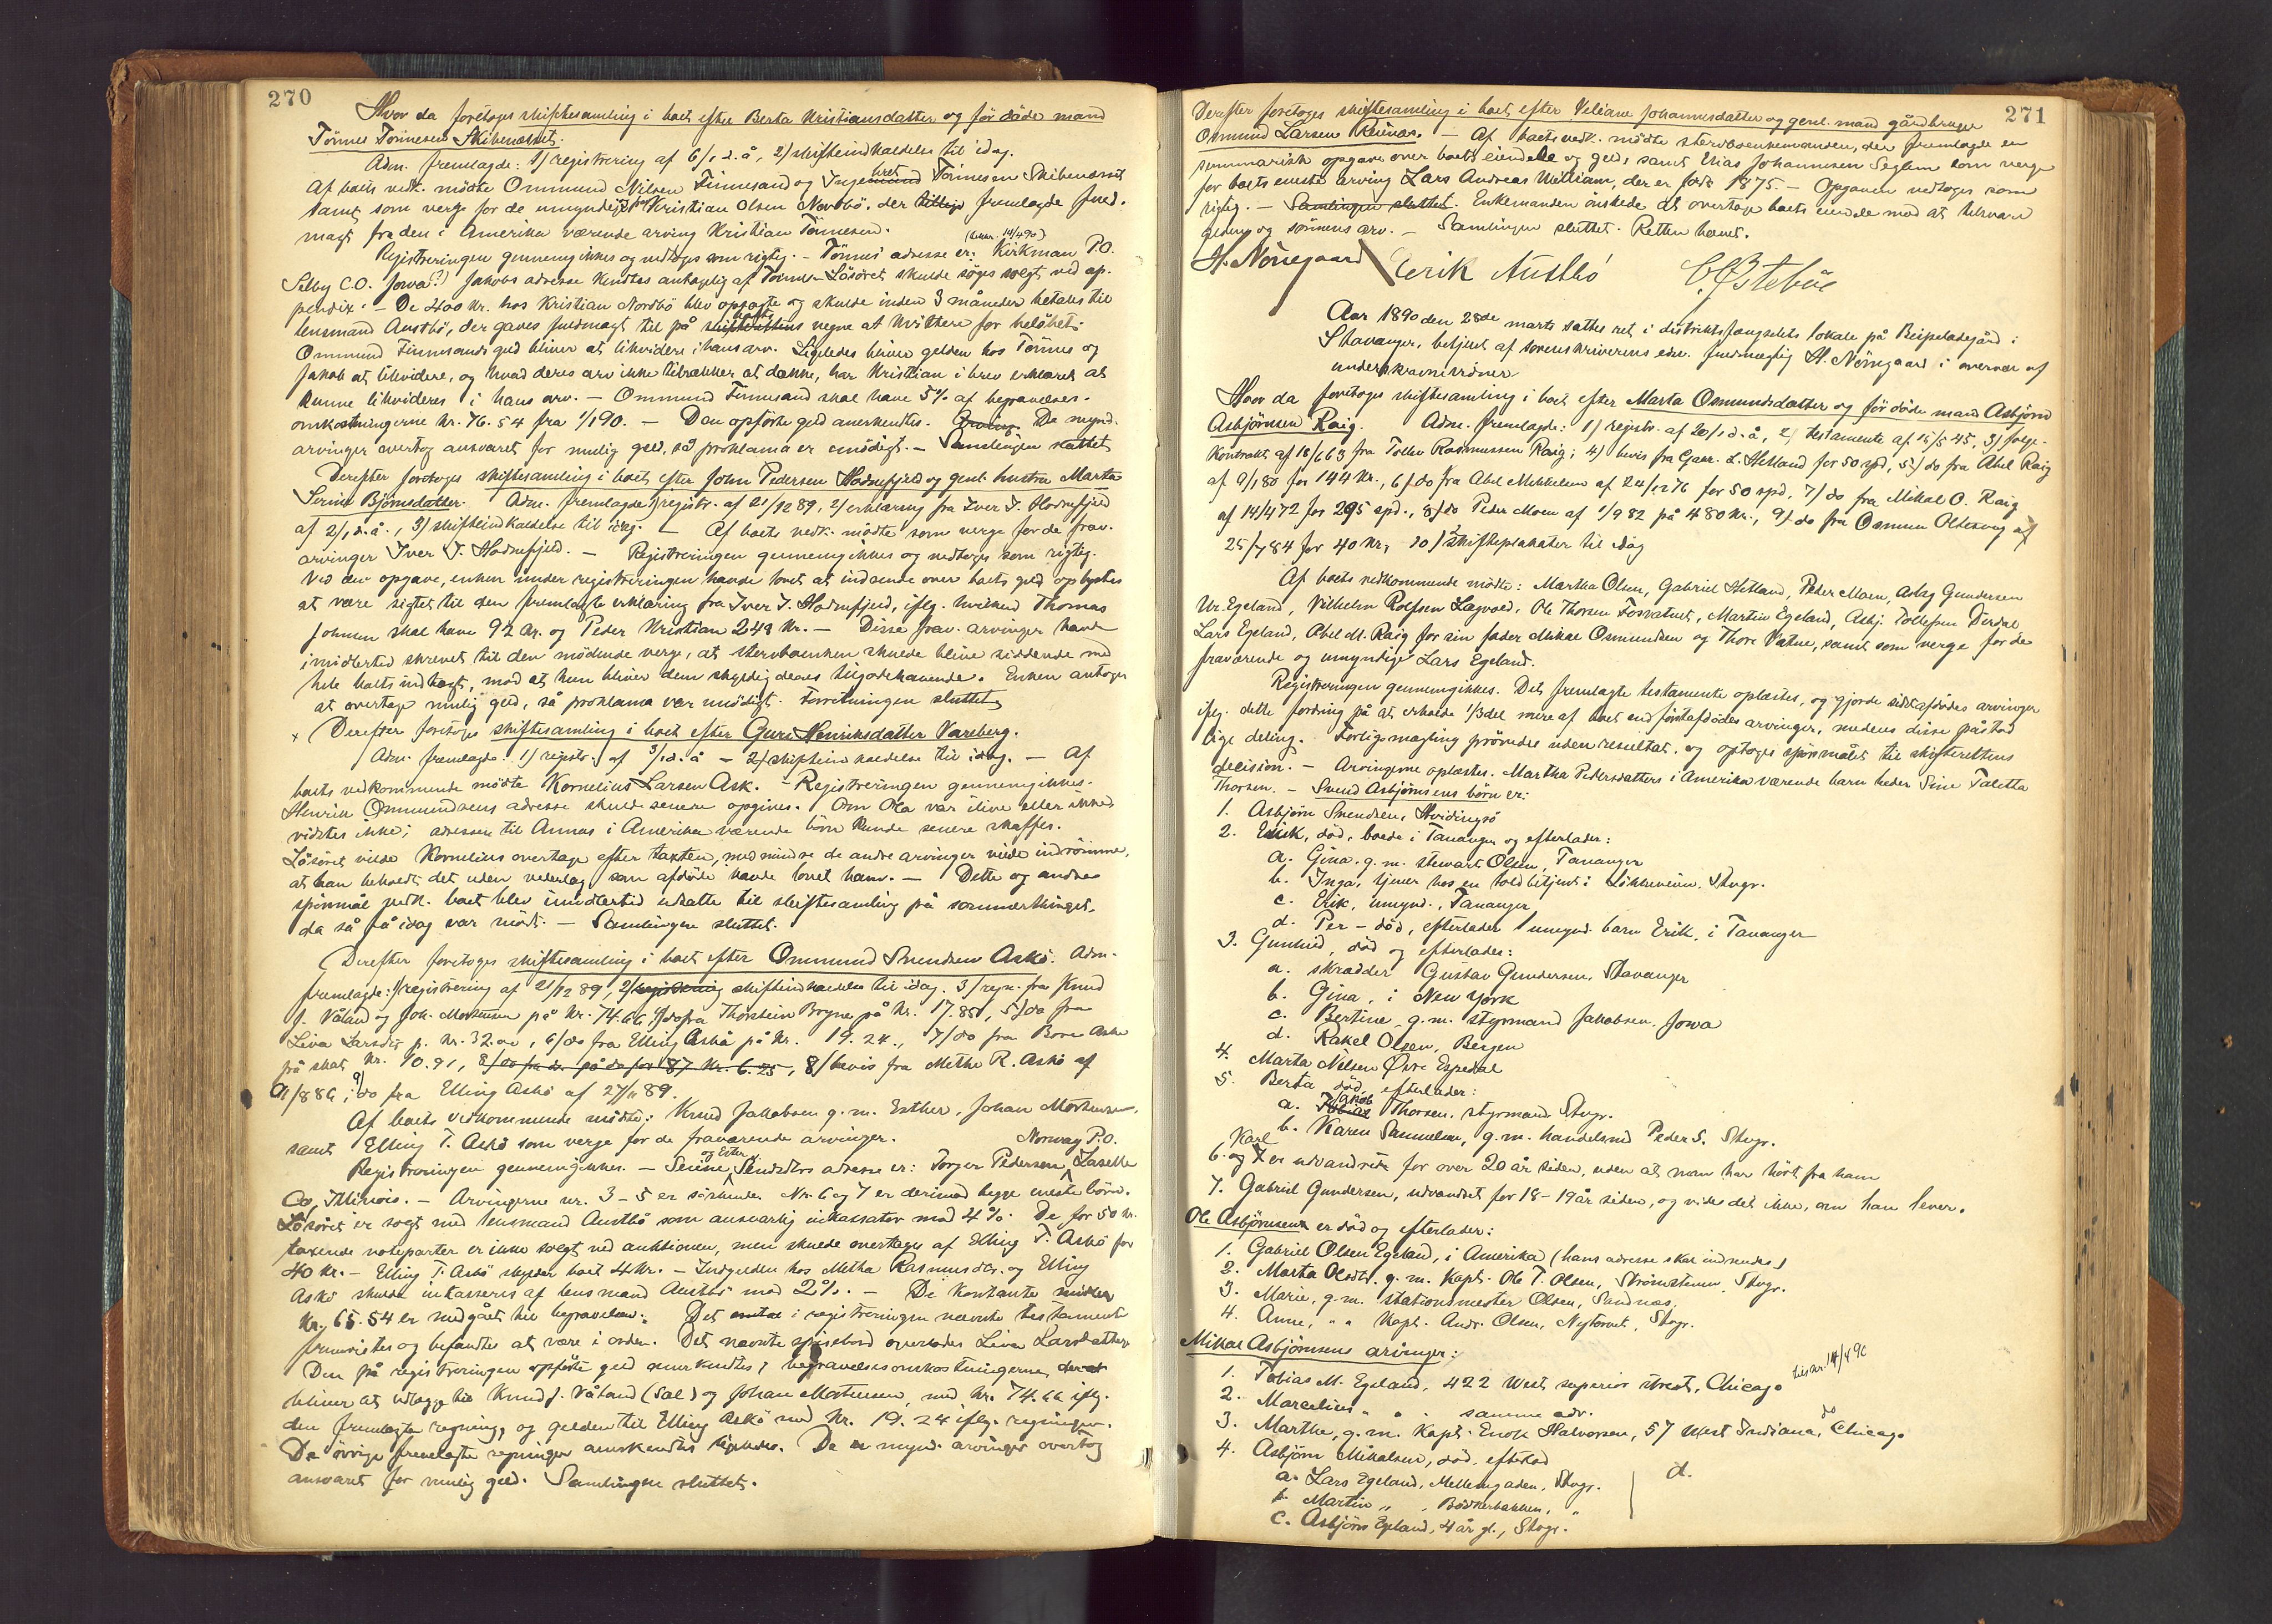 270
Hvor da foretoges skiftesamling i boet efter Berta Kristiansdatter og før døde mand
Tönnes Tönnesen Skibenæsset.
Adm. fremlagde: 1) registrering af 6/1 d.å, 2) skifteindkaldelse til idag.
Af boets vedk. mödte Ommund Nilsen Finnesand og Ingebret Tönnesen Skibenæsset
samt som verge for de umyndige Kristian Olsen Nordbö, der tillige fremlagde fuld-
magt fra den i Amerika værende arving Kristian Tönnesen.
Registreringen gennemgikkes og vedtoges som rigtig. - Tönnes' adresse er: Kirkman P.O.
Selby C.O. Jowa?) Jakobs adresse kendtes antagelig af Tönnes. Lösöret skulde söges solgt ved ap-
pendix. - De 400 kr. hos Kristian Nordbö blev opsagte og skulde inden 3 måneder betales til
lensmand Austbö, der gaves fuldmagt til på boets vegne at kvittere for belöbet.
Ommund Finnesands gæld bliver at likvidere i hans arv. Ligeledes bliver gælden hos Tönnes og
Jakob at likvidere, og hvad deres arv ikke tilrækker at dække, har Kristian i brev erklæret at
kunne likvideres i hans arv. - Ommund Finnesand skal have 5% af begravelses-
omkostningerne kr. 76.54 fra 1/1 90. - Den opförte gæld anerkendtes. De mynd.
arvinger overtog ansvaret for mulig gæld, så proklama er unödigt. - Samlingen sluttet
Derefter foretoges skiftesamling i boet efter John Pedersen Hodnefjeld og genl. hustru Marta
Serine Björnsdatter. Adm. fremlagde 1) registr. af 21/12 89, 2) erklæring fra Iver J. Hodnefjeld
af 2/1 d.å., 3) skifteindkaldelse til idag. - Af boets vedk. mödte som verge for de frav.
arvinger Iver J. Hodnefjeld. - Registreringen gennemgikkes og vedtoges som rigtig.
Ved den opgave, enken under registreringen havde lovet at indsende over boets gæld oplystes
at være sigtet til den fremlagte erklæring fra Iver J. Hodnefjeld, iflg. hvilken Thomas
Johnsen skal have 92 kr. og Peder Kristian 248 kr. - Disse frav. arvinger havde
imidlertid skrevet til den mödende verge, at stervboenken skulde blive siddende med
hele boets indtægt, mod at hun bliver dem skyldig deres tilgodehavende. Enken antoges
at overtage mulig gæld, så proklama var unödigt. Forretningen sluttet
x Derefter foretoges skiftesamling i boet efter Guri Henriksdatter Vareberg.
Adm. fremlagde: 1) registr. af 3/1 d.å - 2) skifteindkaldelse til idag. - Af
boets vedkommende mödte Kornelius Larsen Ask. - Registreringen gennemgikkes.
Henrik Ommundsens adresse skulde senere opgives. Om Ola var ilive eller ikke
vidstes ikke; adressen til Annas i Amerika værende börn kunde senere skaffes.
Lösöret vilde Kornelius overtage efter taxten, medmindre de andre arvinger vilde indrömme,
at han beholdt det uden vederlag som afdöde havde lovet ham. - Dette og andre
spörsmål vedk. boet blev imidlertid udsatte til skiftesamling på sommerthinget,
da så få idag var mödt. - Samlingen sluttet.
Derefter foretoges skiftesamling i boet efter Ommund Svendsen Askö. Adm.
fremlagde: 1) registrering af 21/12 89, 2) skifteindkaldelse til idag. 3) regn. fra Knud
J. Våland og Joh. Mortensen på kr. 74.66 4) do fra Thorstein Bryne på kr. 17.85, 5) do fra
Liva Larsdtr p. kr. 32.00, 6) do fra Elling Askö på kr. 19.24, 7) do fra Bore Aske
på skat kr. 10.91, 8) do fra do. på do for 87 kr. 6.25, 8) bevis fra Methe R. Askö af
9/8 86, 9) do fra Elling Askö af 27/11 89.
Af boets vedkommende mödte: Knud Jakobsen g.m. Esther, Johan Mortensen
samt Elling T. Askö som verge for de fraværende arvinger. Norway P.O.
Registreringen gennemgikkes. - Serine og Ester Svendsdtrs adresse er: Torger Pedersen Laselle
Co, Illinois. - Arvingerne nr. 3-5 er söskende. Nr. 6 og 7 er derimod begge eneste börn.
Lösöret er solgt med lensmand Austbö som ansvarlig inkassator mod 4%. De for 50 kr.
taxerede noteparter er ikke solgt ved auktionen, men skulde overtages af Elling T. Askö for
40 kr. - Elling T. Askö skylder boet 4 kr. - Indgælden hos Metha Rasmusdtr. og Elling
Askö skulde inkasseres af lensmand Austbö mod 2%. - De kontante midler
kr. 65.54 er medgået til begravelsen. Det i registreringen nævnte testament
fremvistes og befandtes at være i orden. Det nævnte spisebord overlodes Liva Larsdatter
Den på registreringen opförte gæld anerkendtes; begravelsesomkostningerne
bliver at udlægge til Knud J. Våland (Sal) og Johan Mortensen, med kr. 74.66 iflg.
den fremlagte regning, og gælden til Elling Askö med kr. 19.24 iflg. regningen.
De övrige fremlagte regninger anerkendtes ligeledes. De mynd. arvinger overtog
ansvaret for mulig gæld. Samlingen sluttet.
271
Derefter foretoges skiftesamling i boet efter Veliane Johannesdatter og genl. mand gårdbruger
Osmund Larsen. - Af boets vedk. mödte stervboenkemanden, der fremlagde en
summarisk opgave over boets eiendele og gæld, samt Elias Johannesen Seglem som verge
for boets eneste arving Lars Andreas William, der er född 1875. - Opgaven vedtoges som
rigtig. - Samlingen sluttet. Enkemanden önskede at overtage boets eiendele mod at tilsvare
gælden og sönnens arv. - Samlingen sluttet. Retten hævet.
H. Nörregaard Eerik Austbö C. Østebøe
Aar 1890 den 28de marts sattes ret i distriktsfængselets lokale på Beipeladegård i
Stavanger, betjent af sorenskriverens edsv. fuldmægtig H. Nörregaard i overvær af
underskrevne vidner
Hvor da foretoges skiftesamling i boet efter Marta Osmundsdatter og för döde mand Asbjörn
Asbjörnsen Raig. Adm. fremlagde: 1) registr. af 20/1 d.å, 2) testamente af 16/5 45, 3) folge-
kontrakt af 18/6 63 fra Tollev Rasmussen Raig; 4) bevis fra Gabr. L. Hetland for 50 spd, 5) do fra Abel Raig
af 9/1 80 for 144 kr., 6) do fra Abel Mikkelsen af 24/12 76 for 50 spd, 7) do fra Mikal O. Raig
af 14/4 72 for 295 spd., 8) do Peder Moen af 1/9 82 på 480 kr., 9) do fra Osmun Oltesvig af
25/7 84 for 40 kr, 10) 2 skifteplakater til idag
Af boets vedkommende mödte: Martha Olsen, Gabriel Hetland, Peder Moen, Aslag Gundersen
Ur. Egeland, Vilhelm Rolfsen Lagvold, Ole Thorsen Fosvatnet, Martin Egeland, Asbj. Tollefsen Dirdal
Lars Egeland, Abel M. Raig for sin fader Mikal Osmundsen og Thore Vatne, samt som verge for de
fraværende og umyndige Lars Egeland.
Registreringen gennemgikkes. Det fremlagte testamente oplæstes, og gjorde sidstafdödes arvinger
iflg. dette fordring på at erholde 1/3 del mere af boet end förstafdödes arvinger, medens disse påstod
lige deling. Forligsmægling prövedes uden resultat, og optoges spörsmålet til skifterettens
decision. - Arvingerne oplæstes. Martha Pedersdatters i Amerika værende barn heder Sine Taletta
Thorsen. - Svend Asbjörnsens börn er:
1. Asbjörn Svendsen, Hvidingsö
2. Erik, död, boede i Tananger og efterlader:
a. Gina, g.m. stewart Olsen, Tananger
b. Inga, tjener hos en toldbetjent i Lökkeveien, Stvgr.
c. Erik, umynd., Tananger
d. Per - död, efterlader 1 umynd. barn Erik, i Tananger
3. Gunhild, död og efterlader:
a. skrædder Gustav Gundersen, Stavanger
b. Gina, i New York
c. Bertine, g.m. styrmand Jakobsen, Jowa
d. Rakel Olsen, Bergen
4. Marta Nilsen Övre Espedal
5. Berta död, efterlader:
a. Jakob Thorsen, styrmand Stvgr.
b. Karen Samuelsen, g.m. handelsmd Peder S. Stvgr.
6. Karl og 7 er udvandret for over 20 år siden, uden at man har hört fra ham
7. Gabriel Gundersen, udvandret for 18-19 år siden, og vides det ikke, om han lever.
Ole Asbjörnsen er död og efterlader:
1. Gabriel Olsen Egeland, i Amerika (hans adresse skal indsendes)
2. Marta Olsdtr. g.m. kapt. Ole T. Olsen, Strömstenen, Stvgr.
3. Marie, g.m. stationsmester Olsen, Sandnæs.
4. Anne, " " kapt. Andr. Olsen, Nytorvet, Stvgr.
Mikal Asbjörnsens arvinger:
1. Tobias M. Egeland, 422 West superior street, Chicago
2. Marcelius " " samme adr.
3. Marthe, g.m. kapt. Enok Halvorsen, 57 West Indiana do Chicago
4. Asbjörn Mikalsen, död, efterlod
a. Lars Egeland, Mellemgaden, Stvgr.
b. Martin " , Bödkerbakken, "
c. Asbjörn Egeland, 4 år gl., Stvgr.
d.